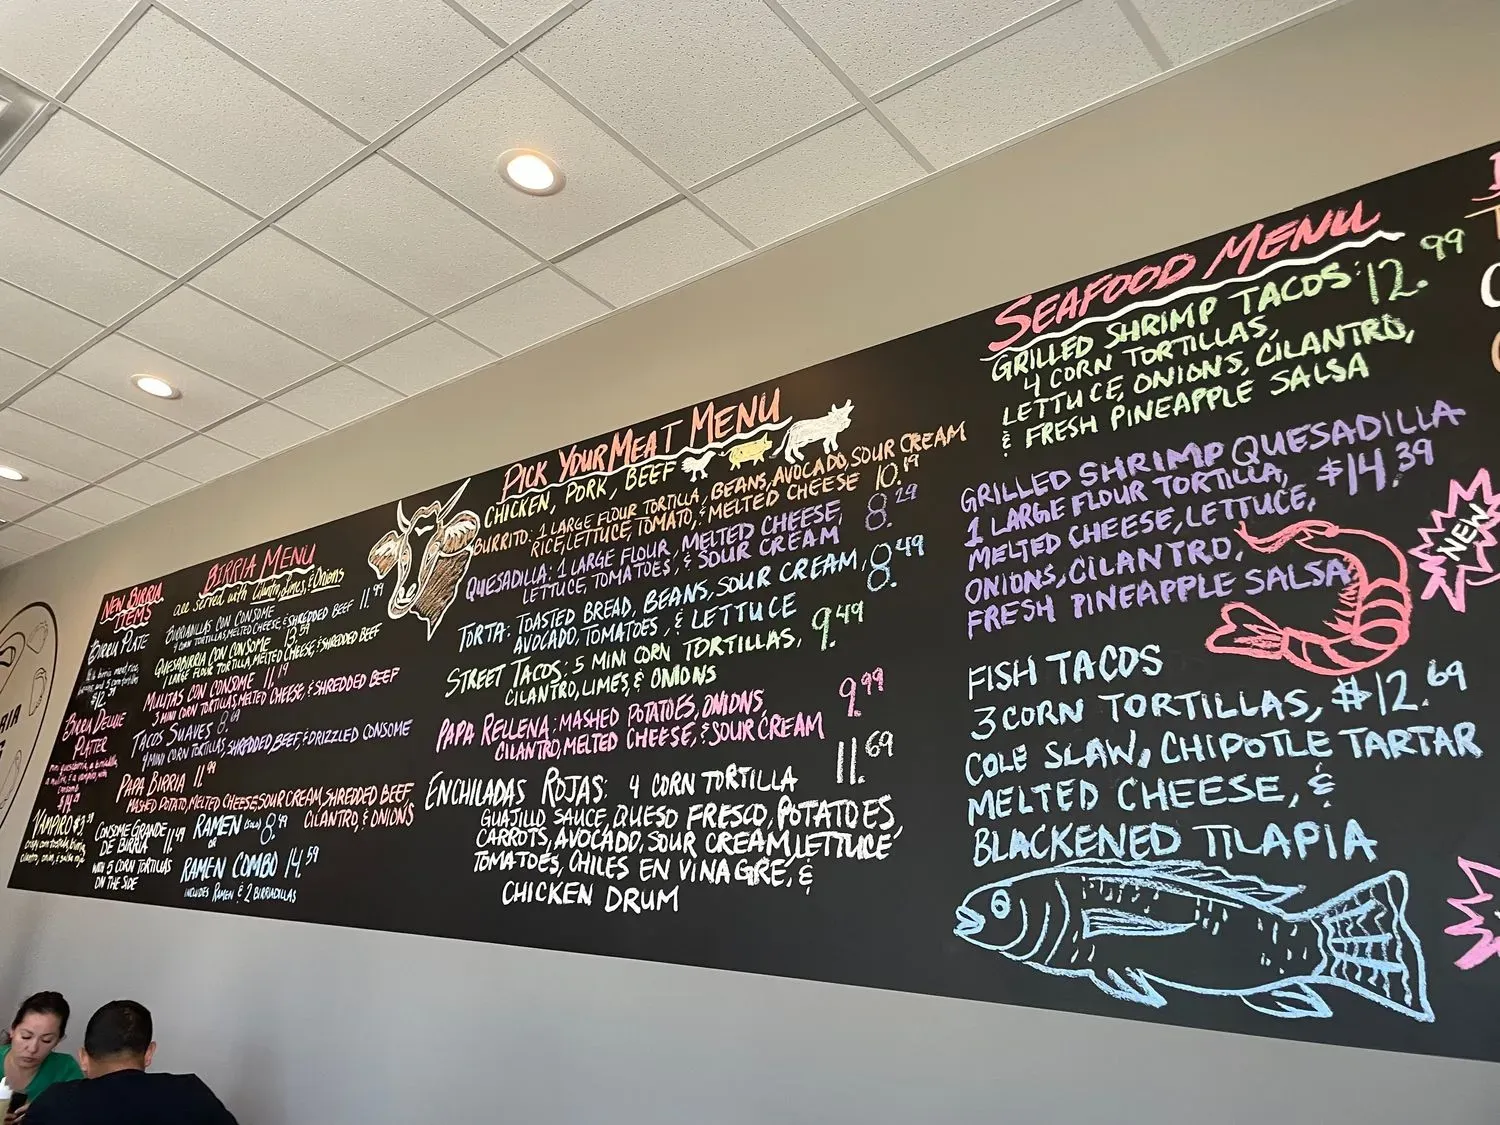 NEW BIRRIA
ITEMS
BIRRIA PLATE
$12.29
BIRRIA DELUXE
PLATTER
$14.29
VAMPIRO
CONSOME GRANDE
DE BIRRIA 11.49
WITH 5 CORN TORTILLAS
ON THE SIDE
BIRRIA MENU
are served with Cilantro, Limes, & Onions
BIRRIADILLAS CON CONSOME
4 CORN TORTILLAS, MELTED CHEESE, & SHREDDED BEEF 11.99
QUESABIRRIA CON CONSOME
1 LARGE FLOUR TORTILLA, MELTED CHEESE, & SHREDDED BEEF
MULITAS CON CONSOME 11.19
3 MINI CORN TORTILLAS, MELTED CHEESE, & SHREDDED BEEF
TACOS SUAVES 8.69
4 MINI CORN TORTILLAS, SHREDDED BEEF, & DRIZZLED CONSOME
PAPA BIRRIA 11.99
MASHED POTATO, MELTED CHEESE, SOUR CREAM, SHREDDED BEEF,
CILANTRO, & ONIONS
RAMEN (SOLO) 8.99
OR
RAMEN COMBO 14.59
INCLUDES RAMEN & 2 BIRRIADILLAS
PICK YOUR MEAT MENU
CHICKEN, PORK, BEEF
BURRITO: 1 LARGE FLOUR TORTILLA, BEANS, AVOCADO, SOUR CREAM
RICE, LETTUCE, TOMATO, & MELTED CHEESE 10.19
QUESADILLA: 1 LARGE FLOUR, MELTED CHEESE, 8.29
LETTUCE, TOMATOES, & SOUR CREAM
TORTA: TOASTED BREAD, BEANS, SOUR CREAM, 8.49
AVOCADO, TOMATOES, & LETTUCE
STREET TACOS: 5 MINI CORN TORTILLAS, 9.49
CILANTRO, LIMES, & ONIONS
PAPA RELLENA: MASHED POTATOES, ONIONS 9.99
CILANTRO, MELTED CHEESE, & SOUR CREAM
ENCHILADAS ROJAS: 4 CORN TORTILLA 11.69
GUAJILLO SAUCE, QUESO FRESCO, POTATOES,
CARROTS, AVOCADO, SOUR CREAM, LETTUCE
TOMATOES, CHILES EN VINAGRE, &
CHICKEN DRUM
SEAFOOD MENU
GRILLED SHRIMP TACOS: 12.99
4 CORN TORTILLAS,
LETTUCE, ONIONS, CILANTRO,
& FRESH PINEAPPLE SALSA
GRILLED SHRIMP QUESADILLA
1 LARGE FLOUR TORTILLA, $14.39
MELTED CHEESE, LETTUCE,
ONIONS, CILANTRO,
FRESH PINEAPPLE SALSA
NEW
FISH TACOS
3 CORN TORTILLAS, $12.69
COLE SLAW, CHIPOTLE TARTAR
MELTED CHEESE, &
BLACKENED TILAPIA